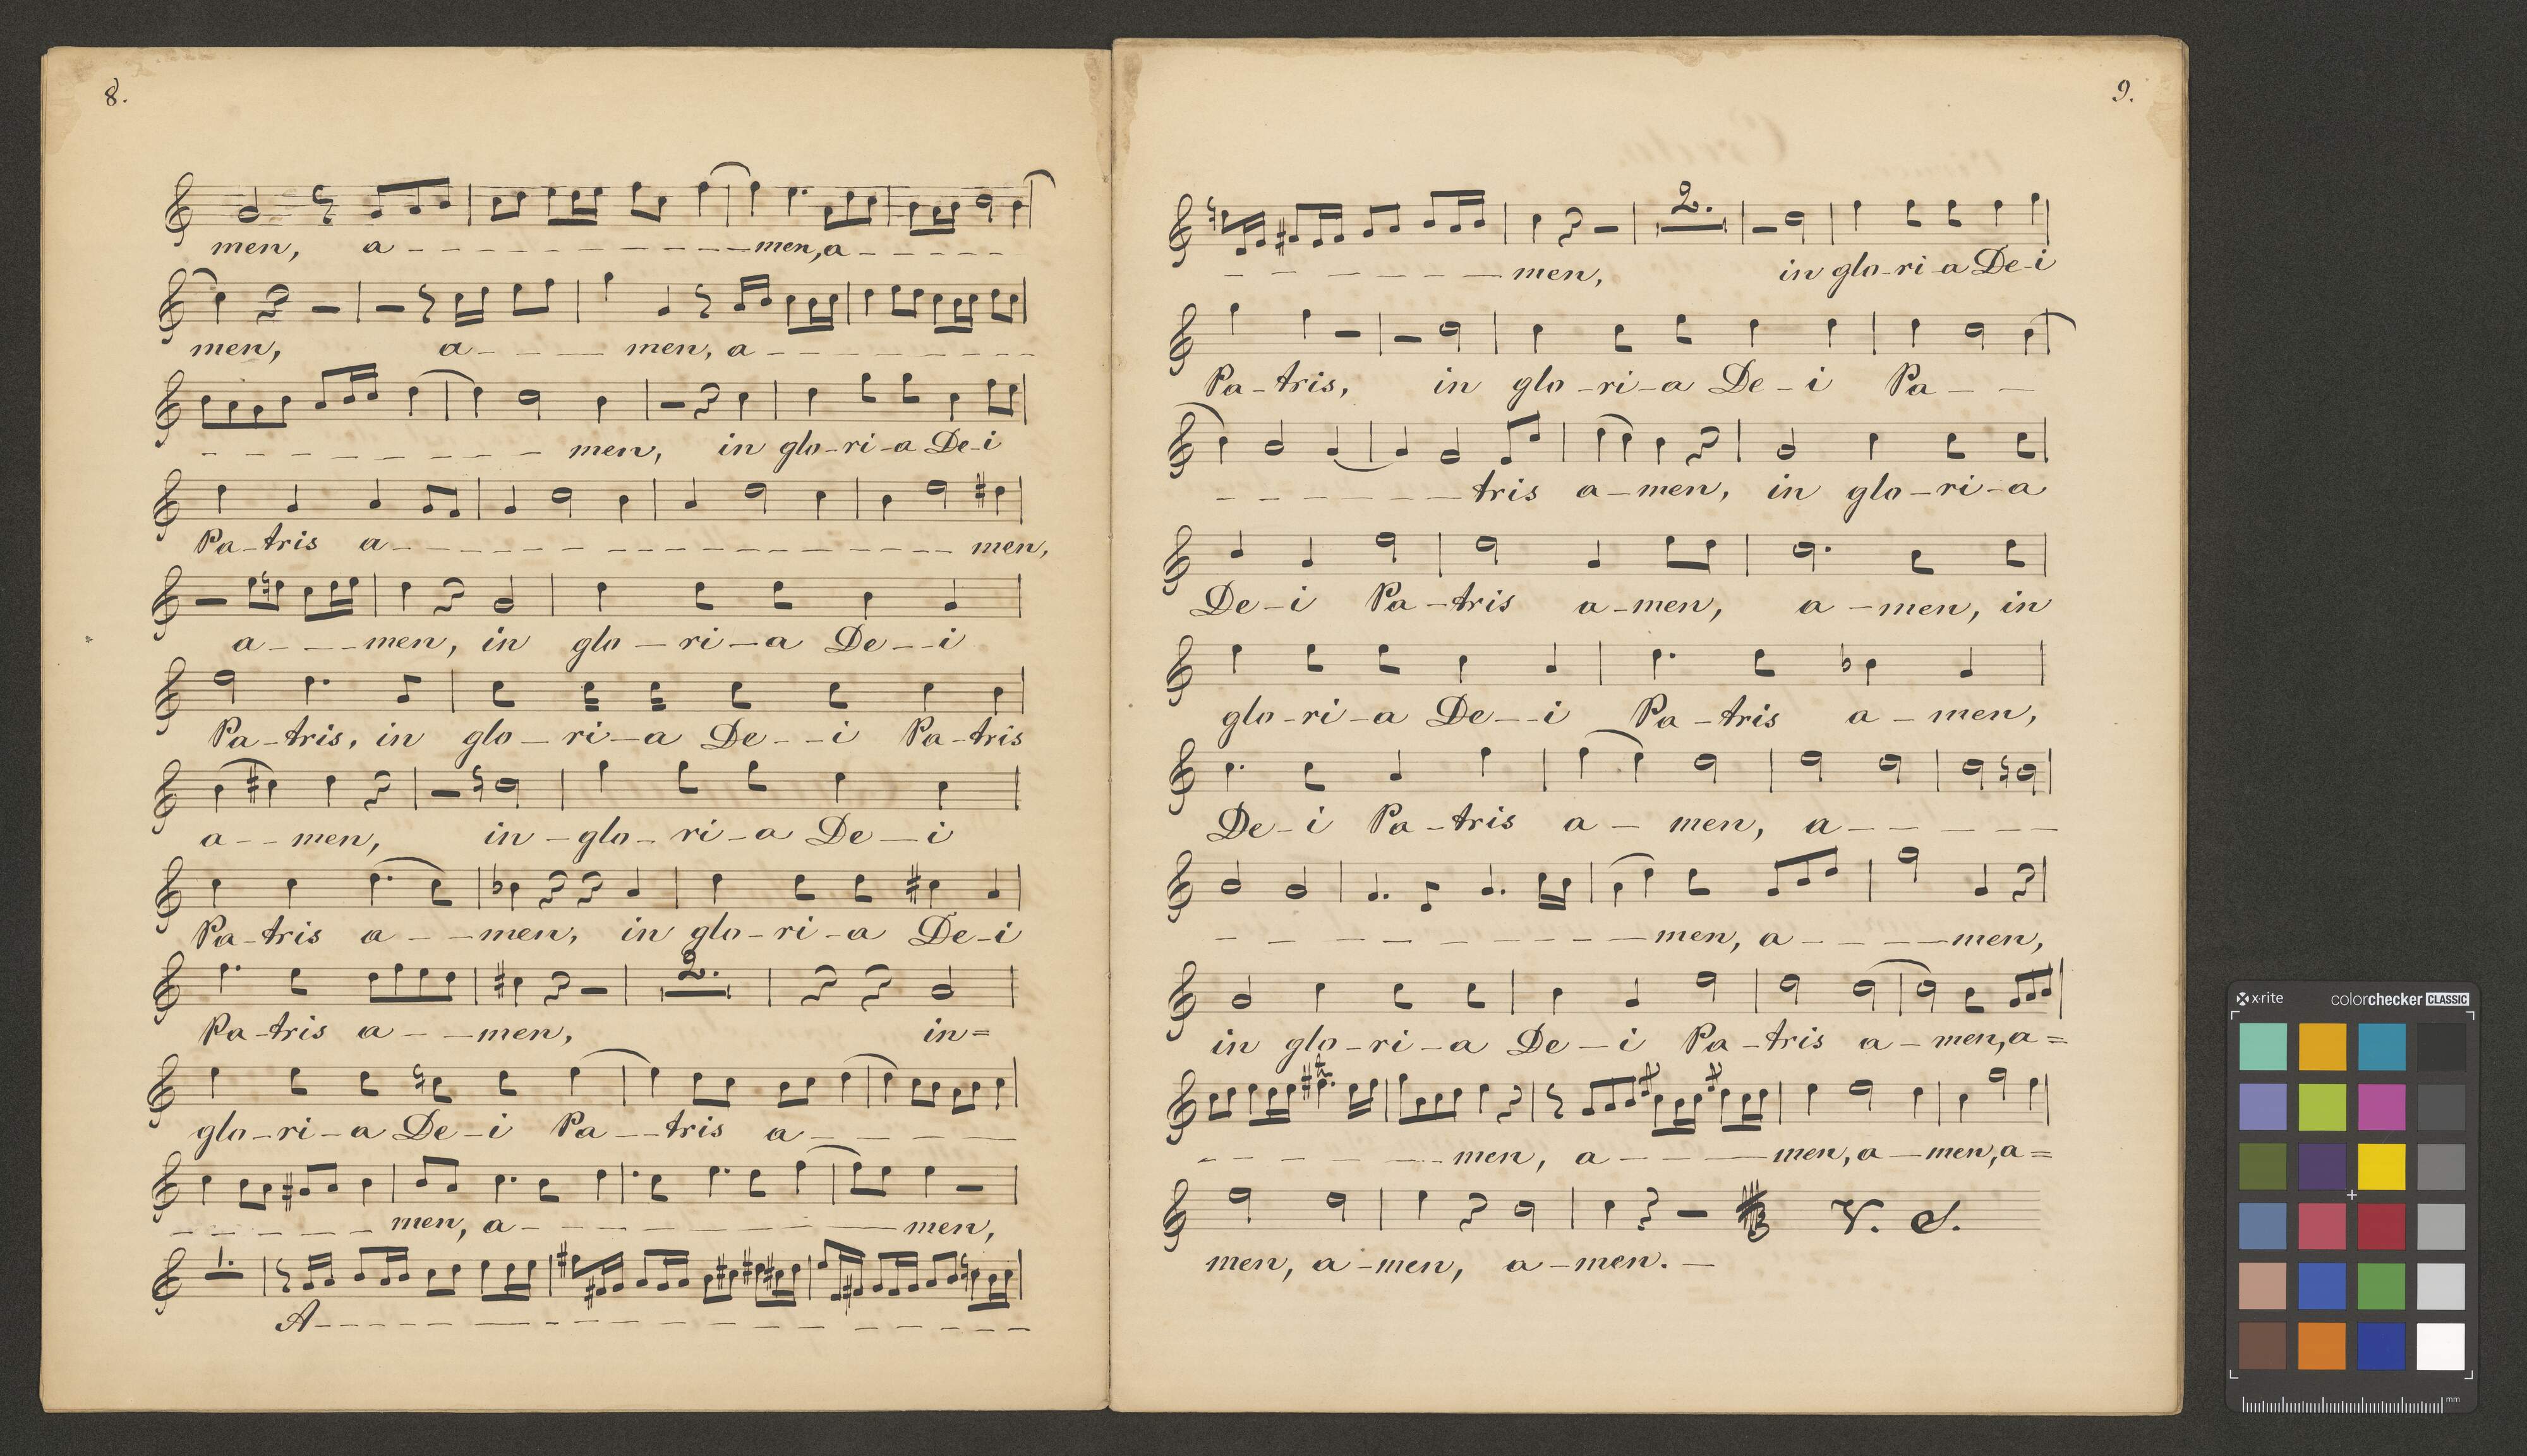 8.
men, a - - - - - - - - - - - men, a - - - - - -
men, a - - - - men, a - - - - - - - - - -
- - - - - - - - men, in glo-ri-a De-i
Pa-tris a - - - - - - - - - - - - - - - - - men,
a - - - men, in glo-ri-a De--i
Pa-tris, in glo-ri-a De--i Pa-tris
a--men, in-glo-ri-a De-i
Pa-tris a---men, in glo-ri-a De-i
2.
Pa-tris a---men, in=
glo-ri-a De-i Pa--tris a - - - - -
- - - - - men, a - - - - - - - men,
1.
A - - - - - - - - - - - - - - - -
9.
2.
- - - - - - - men, in glo-ri-a De-i
Pa-tris, in glo-ri-a De-i Pa - -
- - - - - - tris a-men, in glo-ri-a
De-i Pa-tris a-men, a-men, in
glo-ri-a De--i Pa-tris a-men,
De-i Pa-tris a-men, a - - - - -
- - - - - - - - - men, a - - - - men,
in glo-ri-a De-i Pa-tris a-men, a=
- - - - - - men, a - - - men, a-men, a=
V. S.
men, a-men, a-men. -
x·rite colorchecker CLASSIC
mm